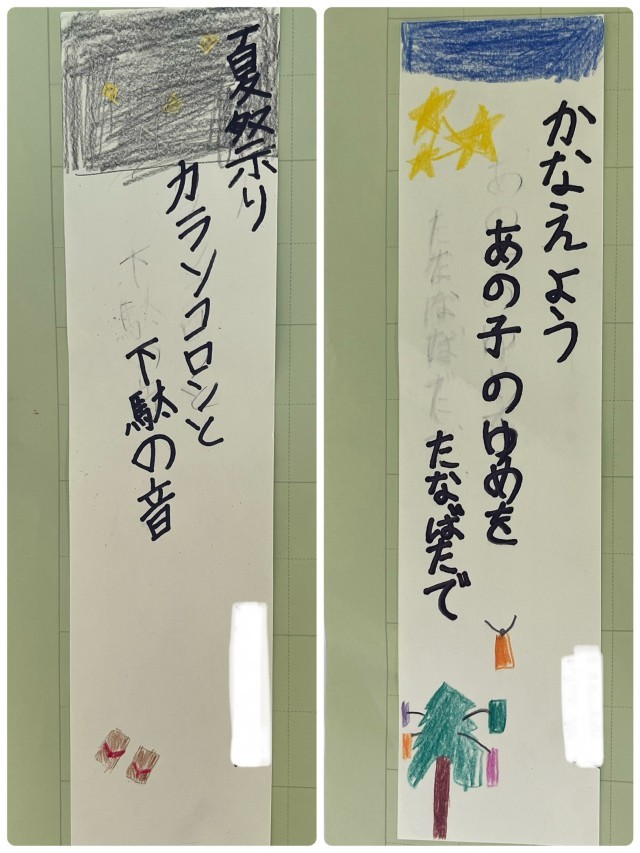 夏祭り
カランコロンと
下駄の音
かなえよう
あの子のゆめを
たなばたで